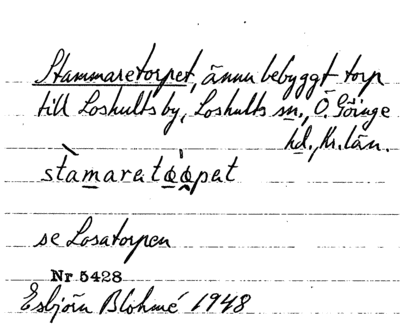 Stammaretorpet, ännu bebyggt torp
till Loshults by, Loshults sn., Ö. Göinge
hd., Kr. län.
stàmaratò̤ò̤pat
se Losatorpen
Nr. 5428
Esbjörn Blohmé 1948